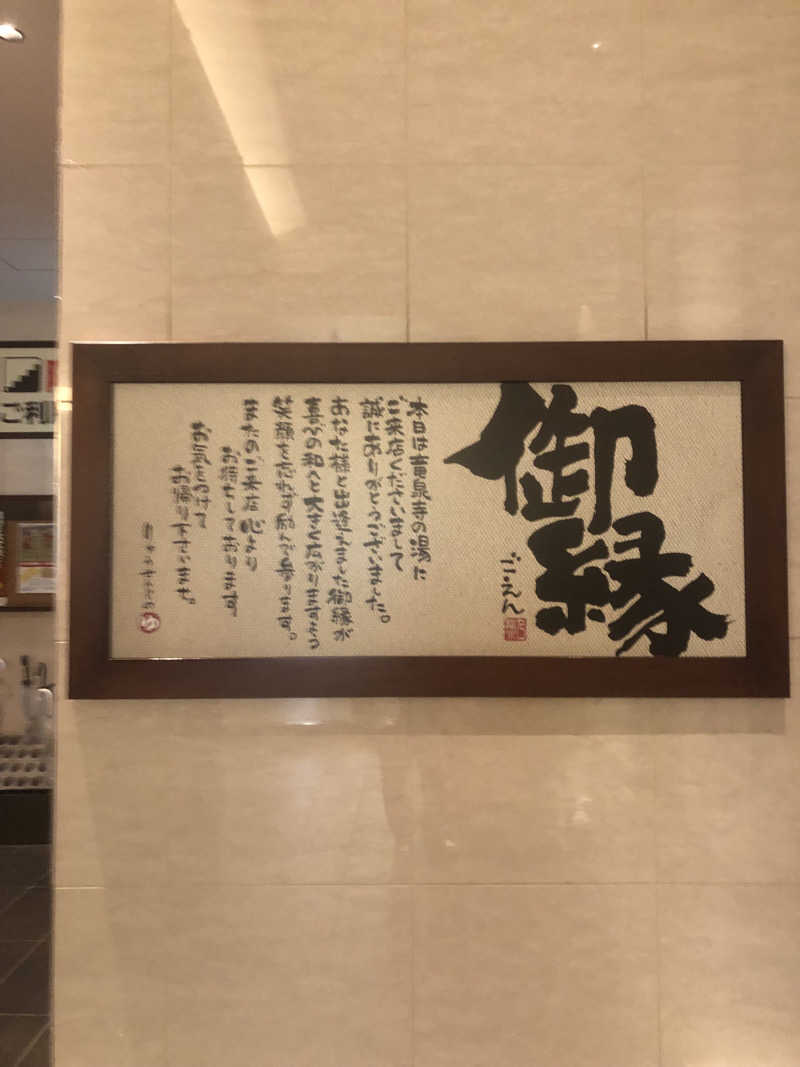 御縁
ご・えん
本日は竜泉寺の湯に
ご来店くださいまして
誠にありがとうございました。
あなた様と出逢えました御縁が
喜びの和へと大きく広がりますよう
笑顔を忘れず励んで参ります。
またのご来店 心より
お待ちしております
お気をつけて
お帰り下さいませ。
ご利